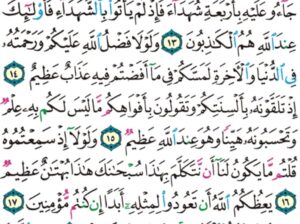 جَآءُو عَلَيْهِ بِأَرْبَعَةِ شُهَدَآءَ فَإِذْ لَمْ يَأْتُوا۟ بِٱلشُّهَدَآءِ فَأُو۟لَٰٓئِكَ
عِندَ ٱللَّهِ هُمُ ٱلْكَٰذِبُونَ ١٣ وَلَوْلَا فَضْلُ ٱللَّهِ عَلَيْكُمْ وَرَحْمَتُهُۥ
فِى ٱلدُّنْيَا وَٱلْءَاخِرَةِ لَمَسَّكُمْ فِى مَآ أَفَضْتُمْ فِيهِ عَذَابٌ عَظِيمٌ ١٤
إِذْ تَلَقَّوْنَهُۥ بِأَلْسِنَتِكُمْ وَتَقُولُونَ بِأَفْوَاهِكُم مَّا لَيْسَ لَكُم بِهِۦ عِلْمٌ
وَتَحْسَبُونَهُۥ هَيِّنًا وَهُوَ عِندَ ٱللَّهِ عَظِيمٌ ١٥ وَلَوْلَآ إِذْ سَمِعْتُمُوهُ
قُلْتُم مَّا يَكُونُ لَنَآ أَن نَّتَكَلَّمَ بِهَٰذَا سُبْحَٰنَكَ هَٰذَا بُهْتَٰنٌ عَظِيمٌ
١٦ يَعِظُكُمُ ٱللَّهُ أَن تَعُودُوا۟ لِمِثْلِهِۦٓ أَبَدًا إِن كُنتُم مُّؤْمِنِينَ ١٧